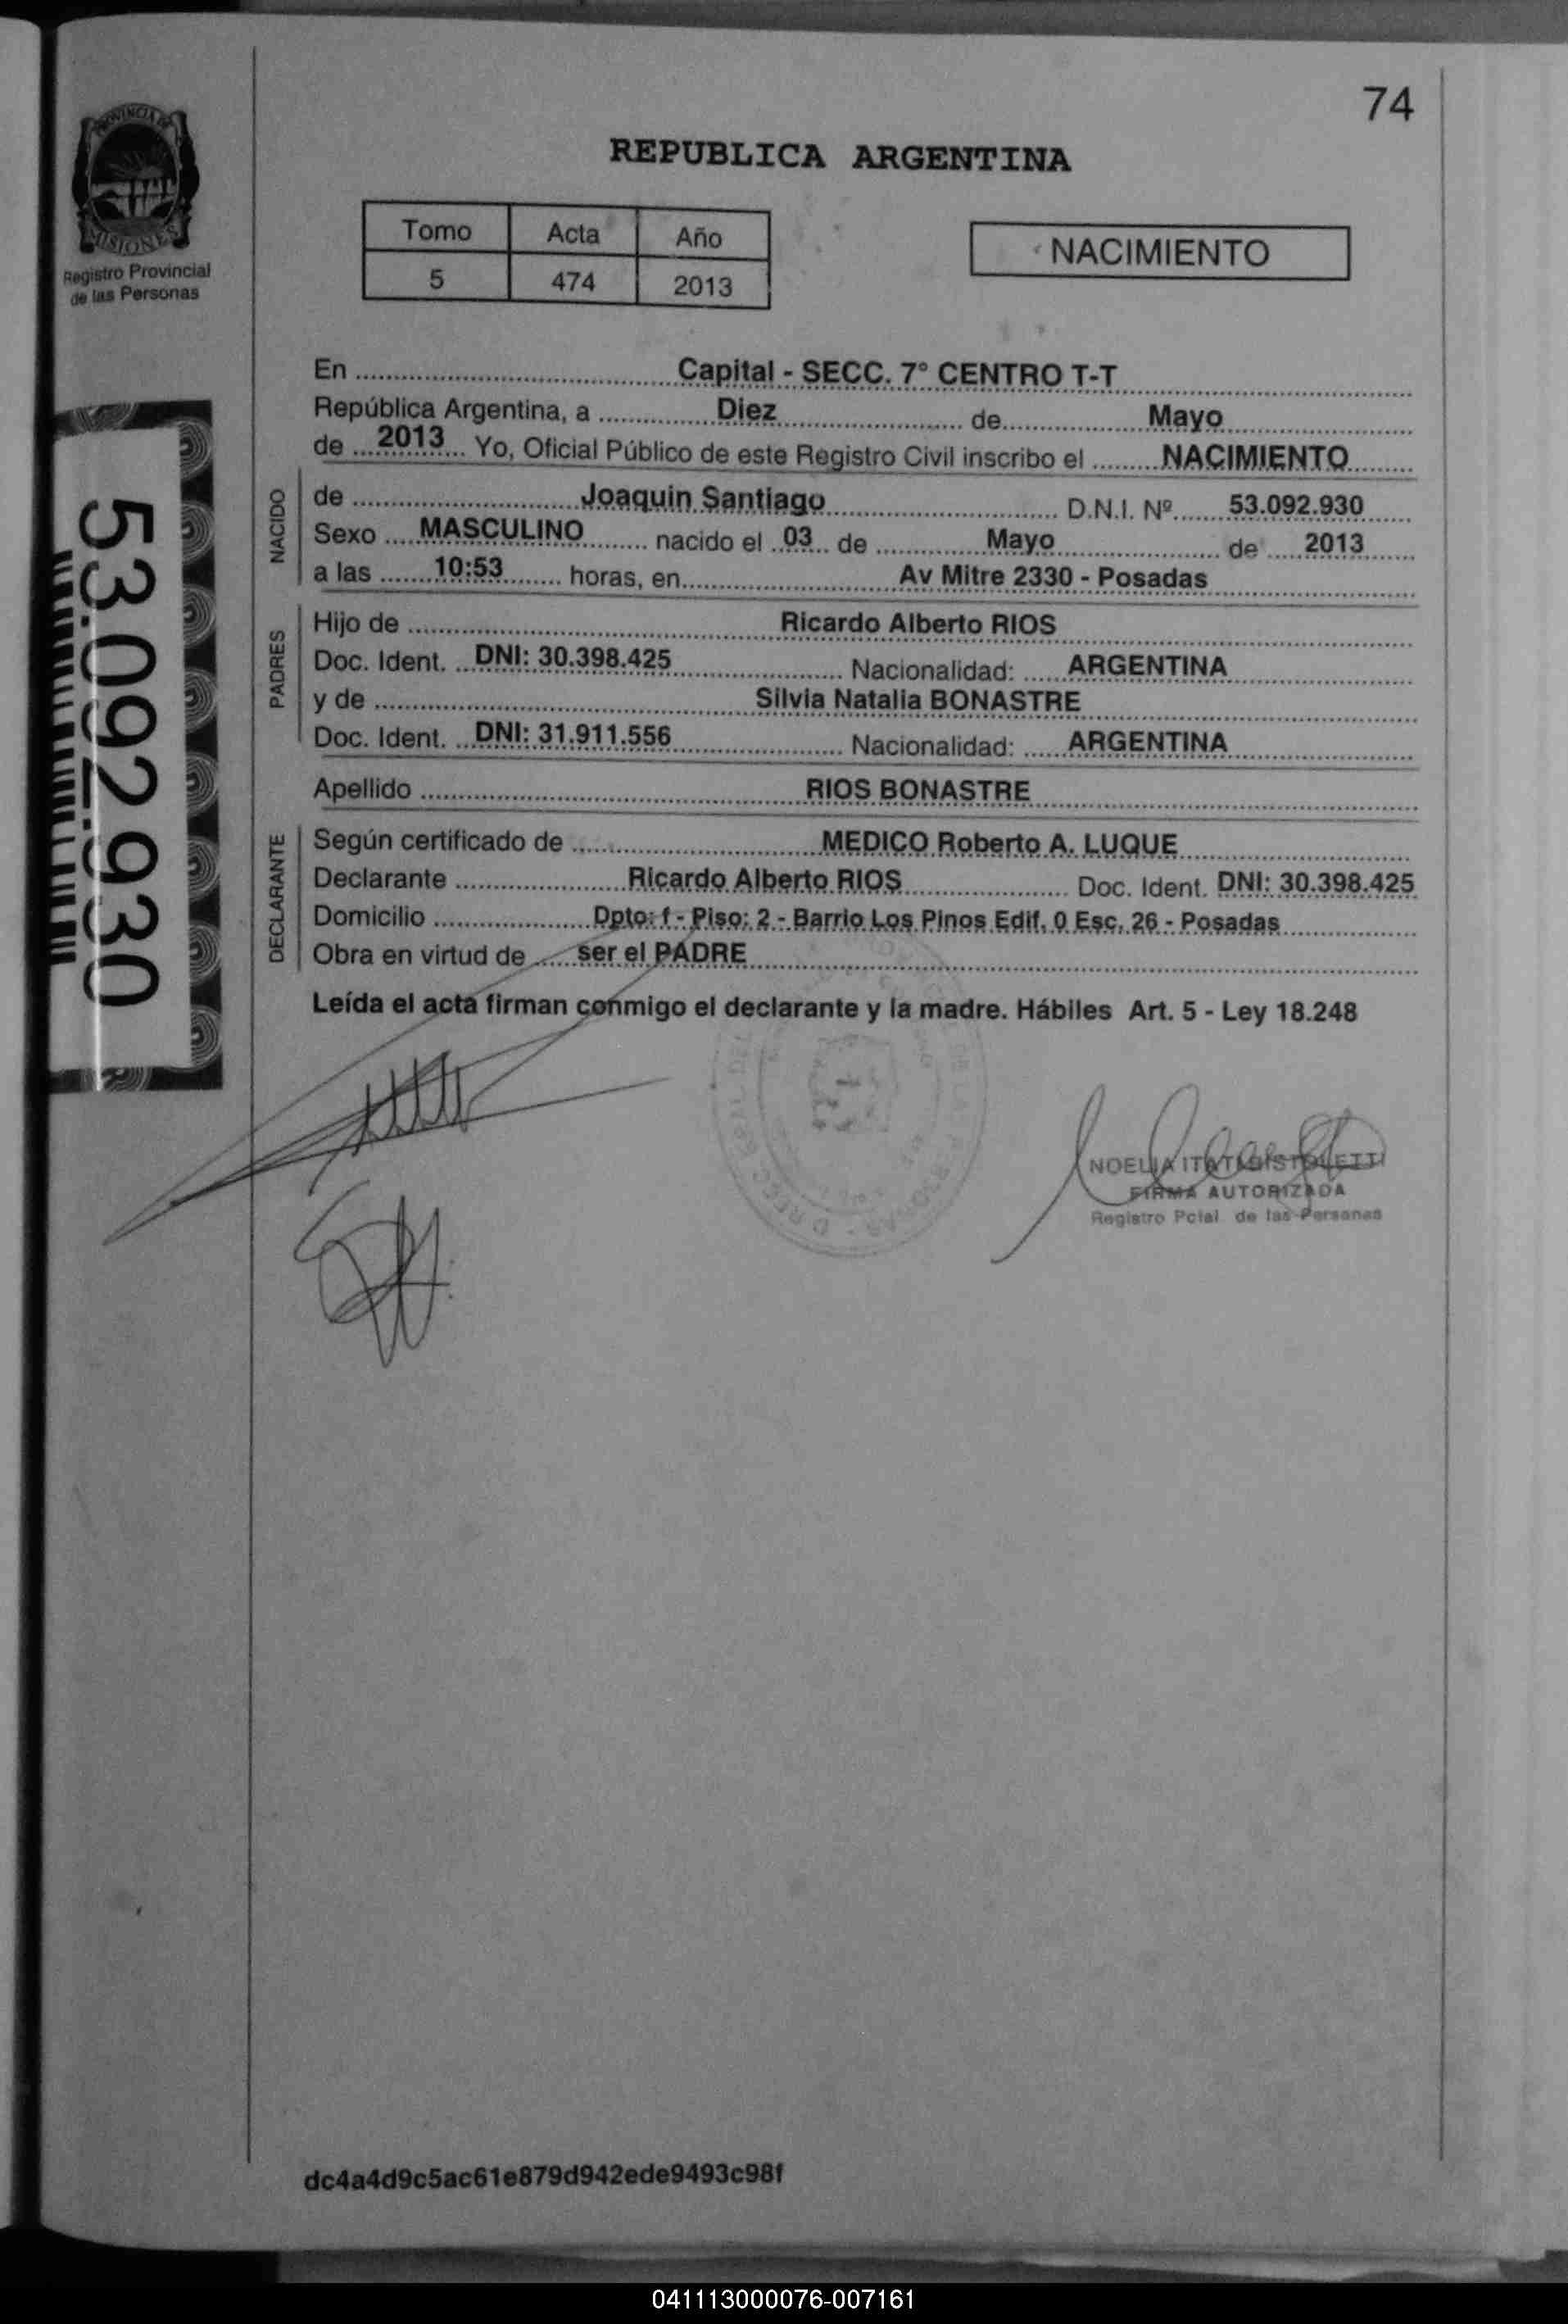 74
PROVINCIA DE
MISIONES
Registro Provincial
de las Personas
REPUBLICA ARGENTINA
Tomo Acta Año
5 474 2013
NACIMIENTO
En Capital - SECC. 7° CENTRO T-T
República Argentina, a Diez de Mayo
de 2013 Yo, Oficial Público de este Registro Civil inscribo el NACIMIENTO
NACIDO
de Joaquin Santiago D.N.I. Nº 53.092.930
Sexo MASCULINO nacido el 03 de Mayo de 2013
a las 10:53 horas, en Av Mitre 2330 - Posadas
PADRES
Hijo de Ricardo Alberto RIOS
Doc. Ident. DNI: 30.398.425 Nacionalidad: ARGENTINA
y de Silvia Natalia BONASTRE
Doc. Ident. DNI: 31.911.556 Nacionalidad: ARGENTINA
Apellido RIOS BONASTRE
DECLARANTE
Según certificado de MEDICO Roberto A. LUQUE
Declarante Ricardo Alberto RIOS Doc. Ident. DNI: 30.398.425
Domicilio Dpto: f - Piso: 2 - Barrio Los Pinos Edif. 0 Esc. 26 - Posadas
Obra en virtud de ser el PADRE
Leída el acta firman conmigo el declarante y la madre. Hábiles Art. 5 - Ley 18.248
53.092.930
NOELIA ITATI
FIRMA AUTORIZADA
Registro Pcial de las Personas
dc4a4d9c5ac61e879d942ede9493c98f
041113000076-007161